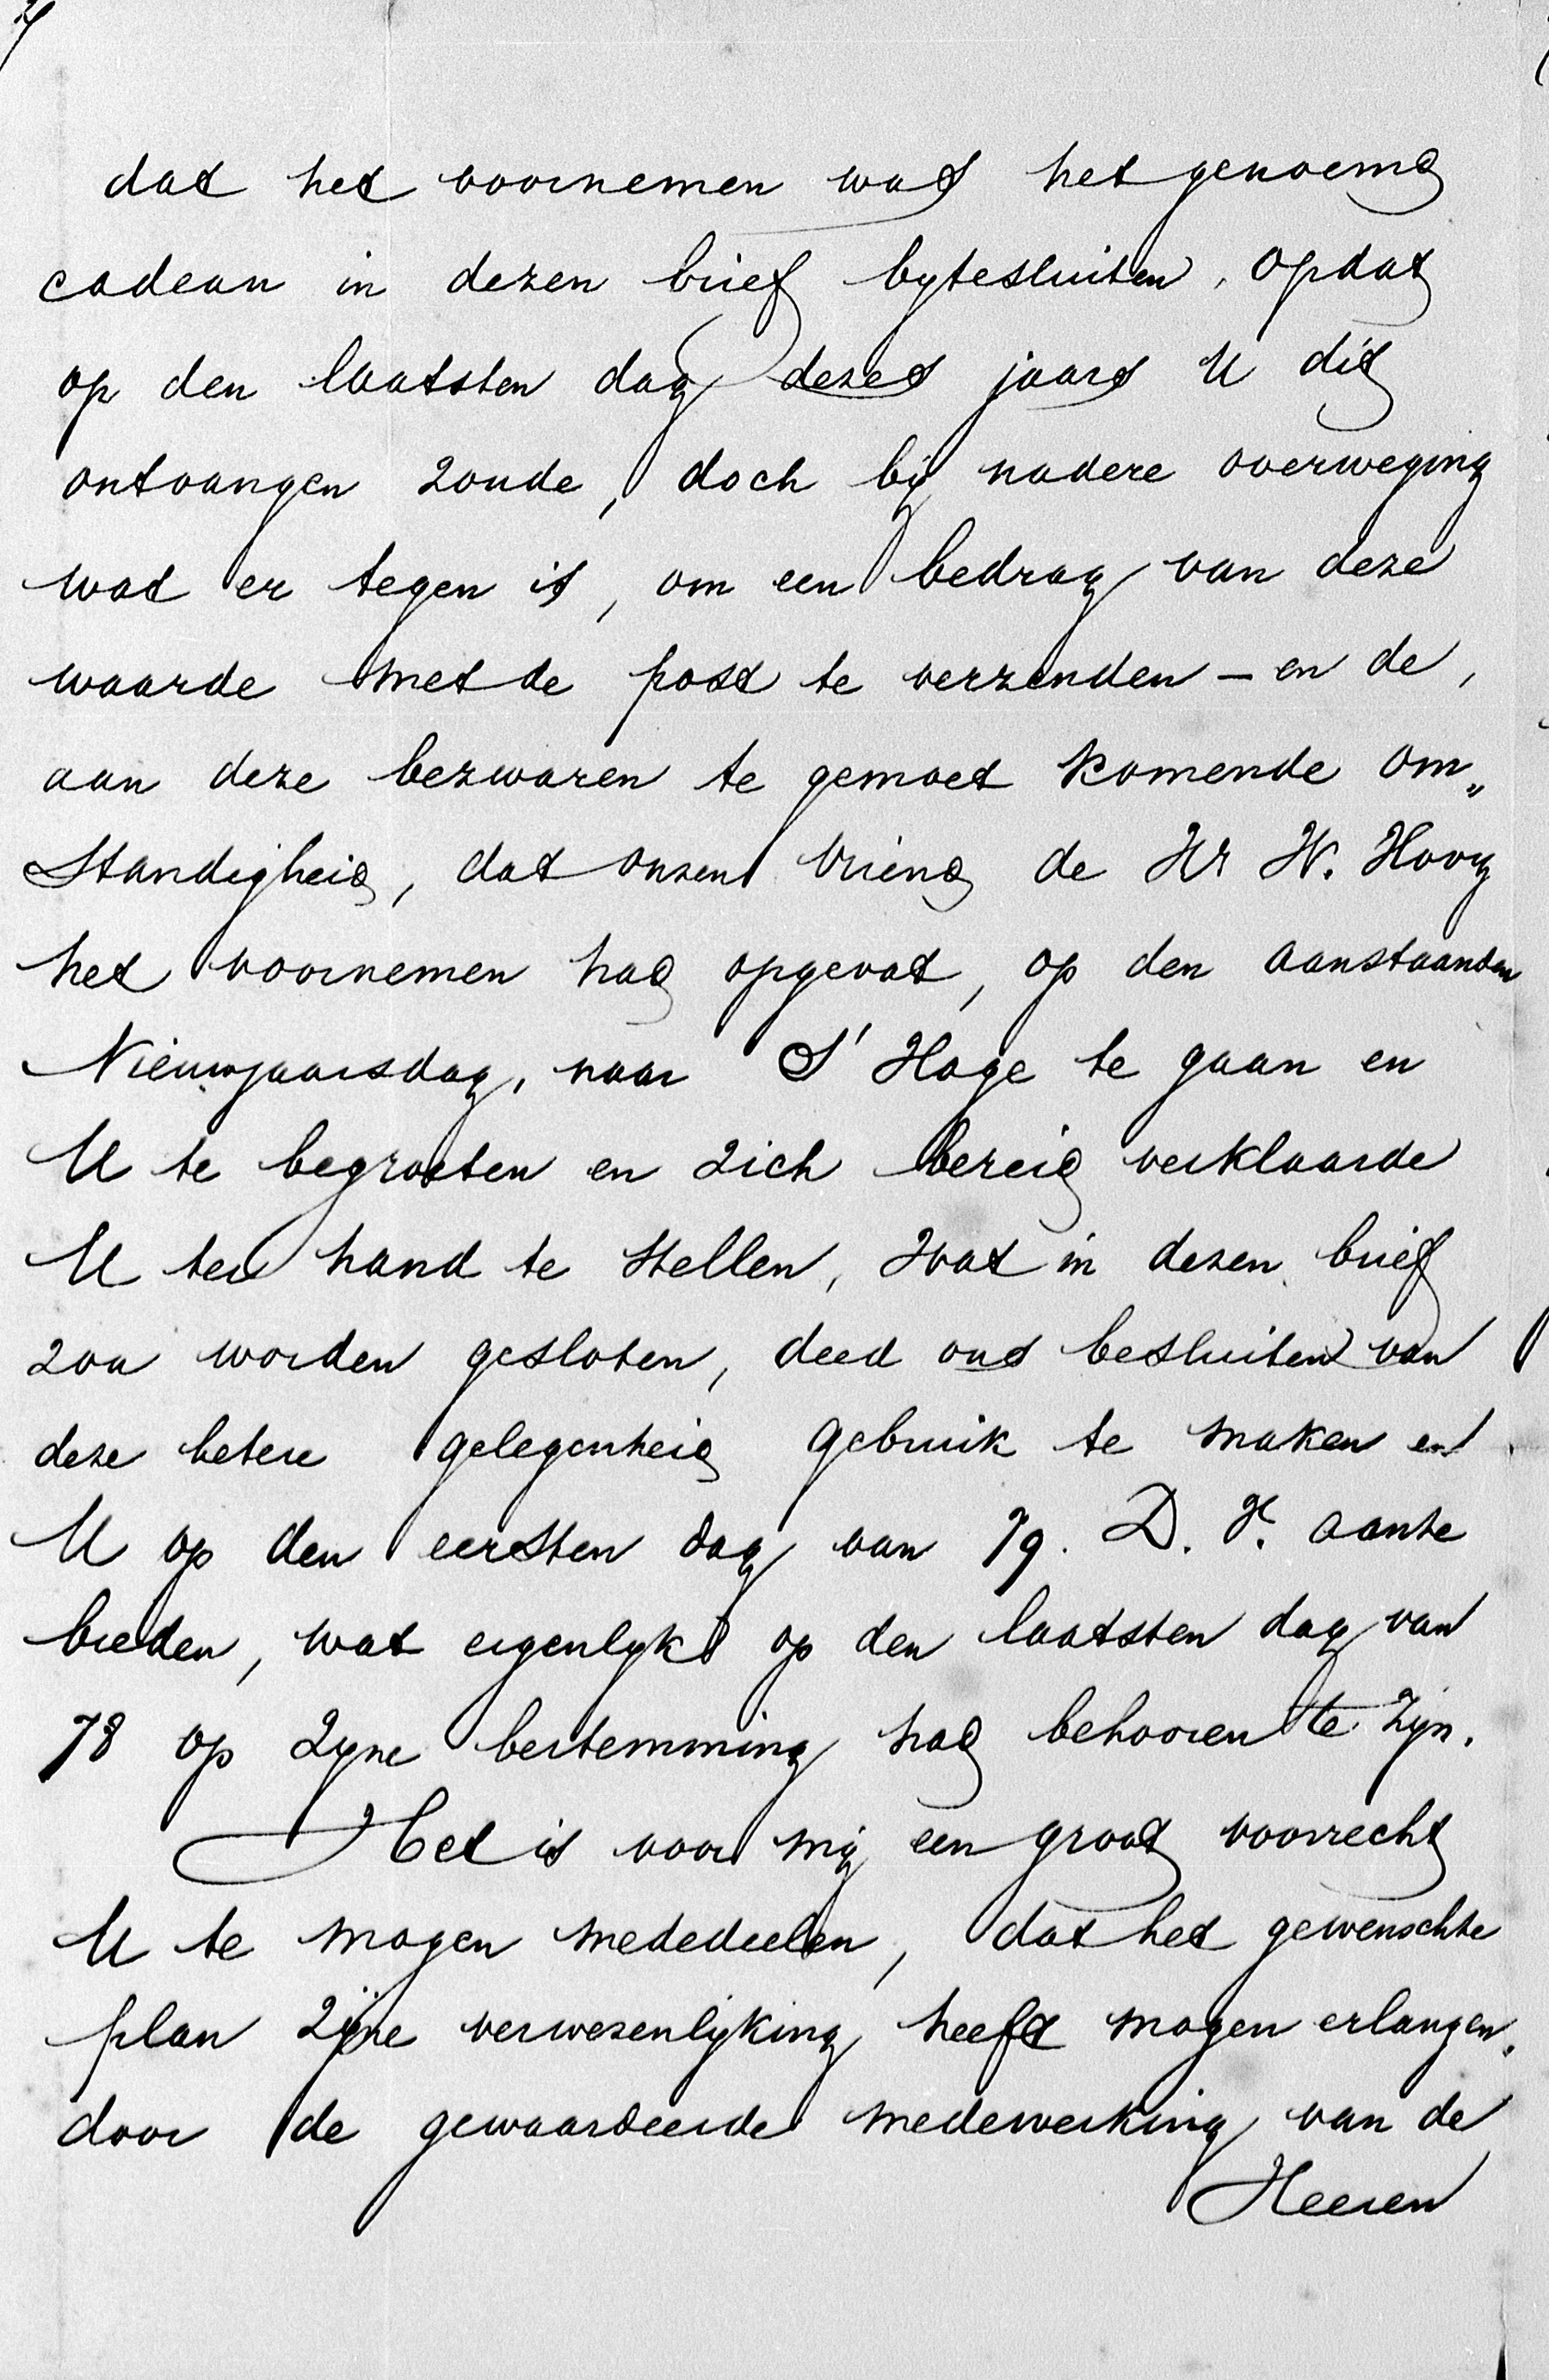 dat het voornemen was het genoemd
cadeau in dezen brief bytesluiten, opdat
op den laatsten dag dezes jaars U dit
ontvangen zoude, doch bij nadere overweging
wat er tegen is, om een bedrag van deze
waarde met de post te verzenden – en de,
aan deze bezwaren te gemoet komende om„
standigheid, dat onzen vriend de Hr W. Hovy
het voornemen had opgevat, op den aanstaanden
Nieuwjaarsdag, naar S' Hage te gaan en
U te begroeten en zich bereid verklaarde
U ter hand te stellen, wat in dezen brief
zou worden gesloten, deed ons besluiten van
deze betere gelegenheid gebruik te maken en
U op den eersten dag van 79. D. V. aante
bieden, wat eigenlyk op den laatsten dag van
78 op zyne bestemming had behooren te zijn.
Het is voor mij een groot voorrecht
U te mogen mededeelen, dat het gewenschte
plan zijne verwezenlijking heeft mogen erlangen,
door de gewaardeerde medewerking van de
Heeren